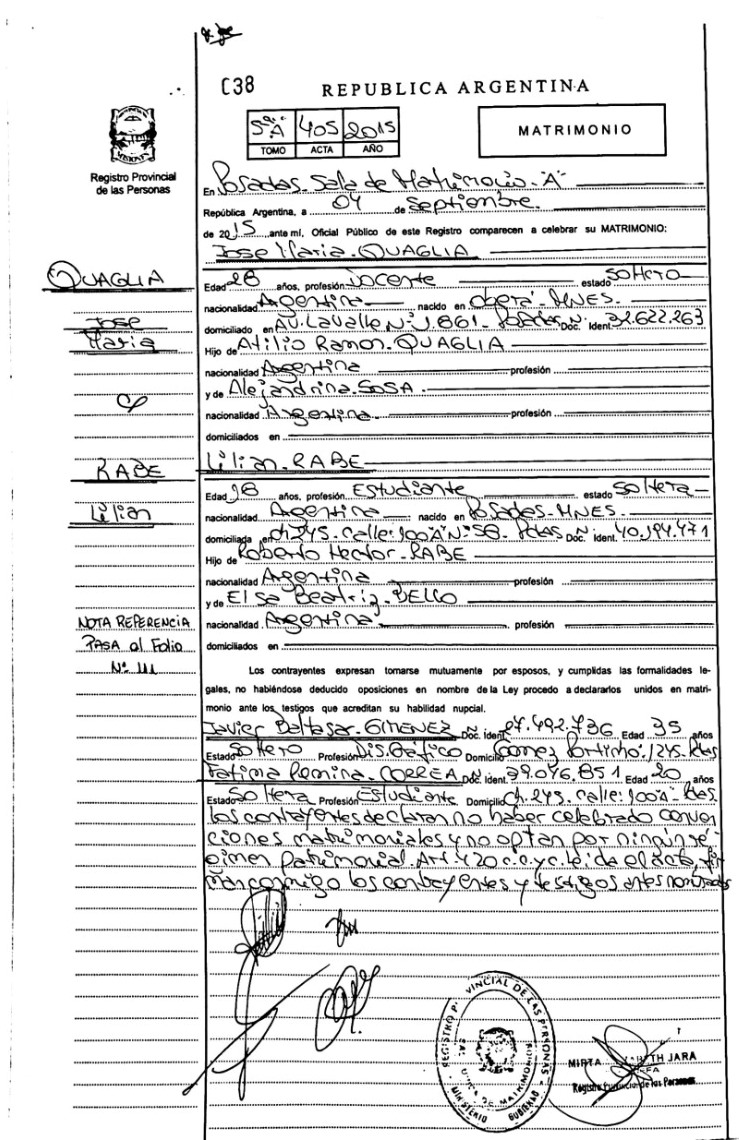 C38
REPUBLICA ARGENTINA
5º"A" 405 2015
TOMO ACTA AÑO
MATRIMONIO
Registro Provincial
de las Personas
En Posadas. Sala de Matrimonio. "A"
República Argentina, a 04 de Septiembre.
de 2015 ante mí, Oficial Público de este Registro comparecen a celebrar su MATRIMONIO:
Jose Maria. QUAGLIA
QUAGLIA
Jose
Maria
Edad 28 años, profesión Docente estado Soltero
nacionalidad Argentina nacido en Oberá - MNES.
domiciliado en AV. Lavalle Nº 1.861 - Posadas Doc. Nº Ident. 32.622.263
Hijo de Atilio Ramon. QUAGLIA
nacionalidad Argentina profesión
y de Alejandrina. SOSA
nacionalidad Argentina profesión
domiciliados en
Lilian. RABE
RABE
Lilian
Edad 18 años, profesión Estudiante estado Soltera
nacionalidad Argentina nacido en Posadas - MNES.
domiciliada en Ch. 245. Calle: 100"A" Nº 58. Pdas Doc. Nº Ident. 40.194.471
Hijo de Roberto Hector. RABE
nacionalidad Argentina profesión
y de Elsa Beatriz. DELLO
nacionalidad Argentina profesión
domiciliados en
NOTA REFERENCIA
PASA al Folio
Nº 111
Los contrayentes expresan tomarse mutuamente por esposos, y cumplidas las formalidades le-
gales, no habiéndose deducido oposiciones en nombre de la Ley procedo a declararlos unidos en matri-
monio ante los testigos que acreditan su habilidad nupcial.
Javier Baltasar. GIMENEZ Doc. Nº Ident. 27.492.736 Edad 35 años
Estado Soltero Profesión Dis. Gráfico Domicilio Gomez Portinho. 1245. Pdas
Fatima Romina. CORREA Doc. Nº Ident. 39.046.851 Edad 20 años
Estado Soltera Profesión Estudiante Domicilio Ch. 245. Calle: 100"A" Pdas
los contrayentes declaran no haber celebrado conven
ciones matrimoniales y no optan por ningún ré-
gimen Patrimonial. Art. 420 c.c.y.c. leida el acta fir
man conmigo los contrayentes y testigos antes nombrados
REGISTRO PROVINCIAL DE LAS PERSONAS
MINISTERIO GOBIERNO
DE MATRIMONIOS
MIRTA JARA
Registro Provincial de las Personas